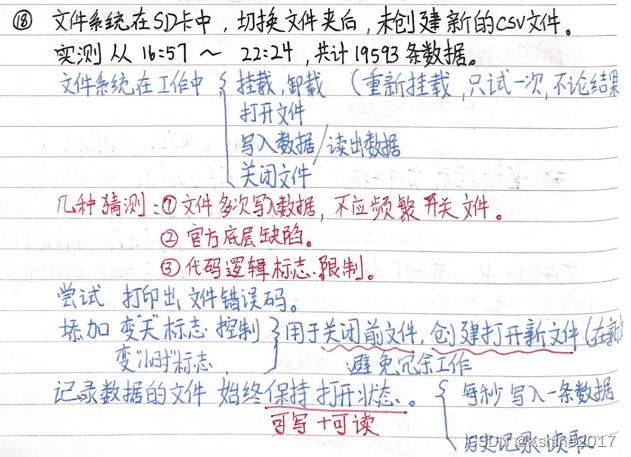 ⑱ 文件系统在SD卡中，切换文件夹后，未创建新的CSV文件。
实测从16:57～22:24，共计19593条数据。
文件系统在工作中 { 挂载，卸载（重新挂载，只试一次，不论结果
打开文件
写入数据/读出数据
关闭文件
几种猜测：① 文件多次写入数据，不应频繁开关文件。
② 官方底层缺陷。
③ 代码逻辑标志、限制。
尝试 打印出文件错误码。
添加 变"天"标志 控制 } 用于关闭前文件，创建打开新文件（在新
变"小时"标志， 避免冗余工作
记录数据的文件 始终保持打开状态。 { 每秒写入一条数据
可写+可读
历史记录读取。
CSDN @kshine2017